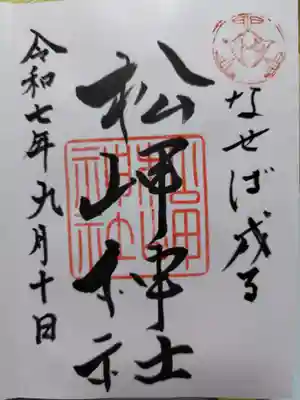 なせば成る
松岬神社
松岬
神社
令和七年九月十日